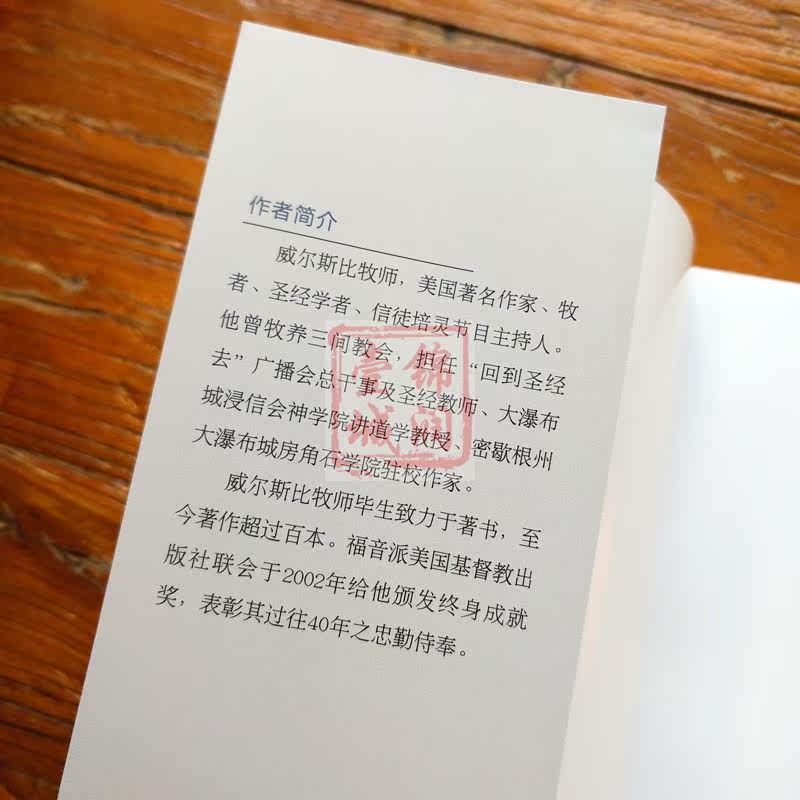 作者简介
威尔斯比牧师，美国著名作家、牧
者、圣经学者、信徒培灵节目主持人。
他曾牧养三间教会，担任“回到圣经
去”广播会总干事及圣经教师、大瀑布
城浸信会神学院讲道学教授、密歇根州
大瀑布城房角石学院驻校作家。
威尔斯比牧师毕生致力于著书，至
今著作超过百本。福音派美国基督教出
版社联会于2002年给他颁发终身成就
奖，表彰其过往40年之忠勤侍奉。